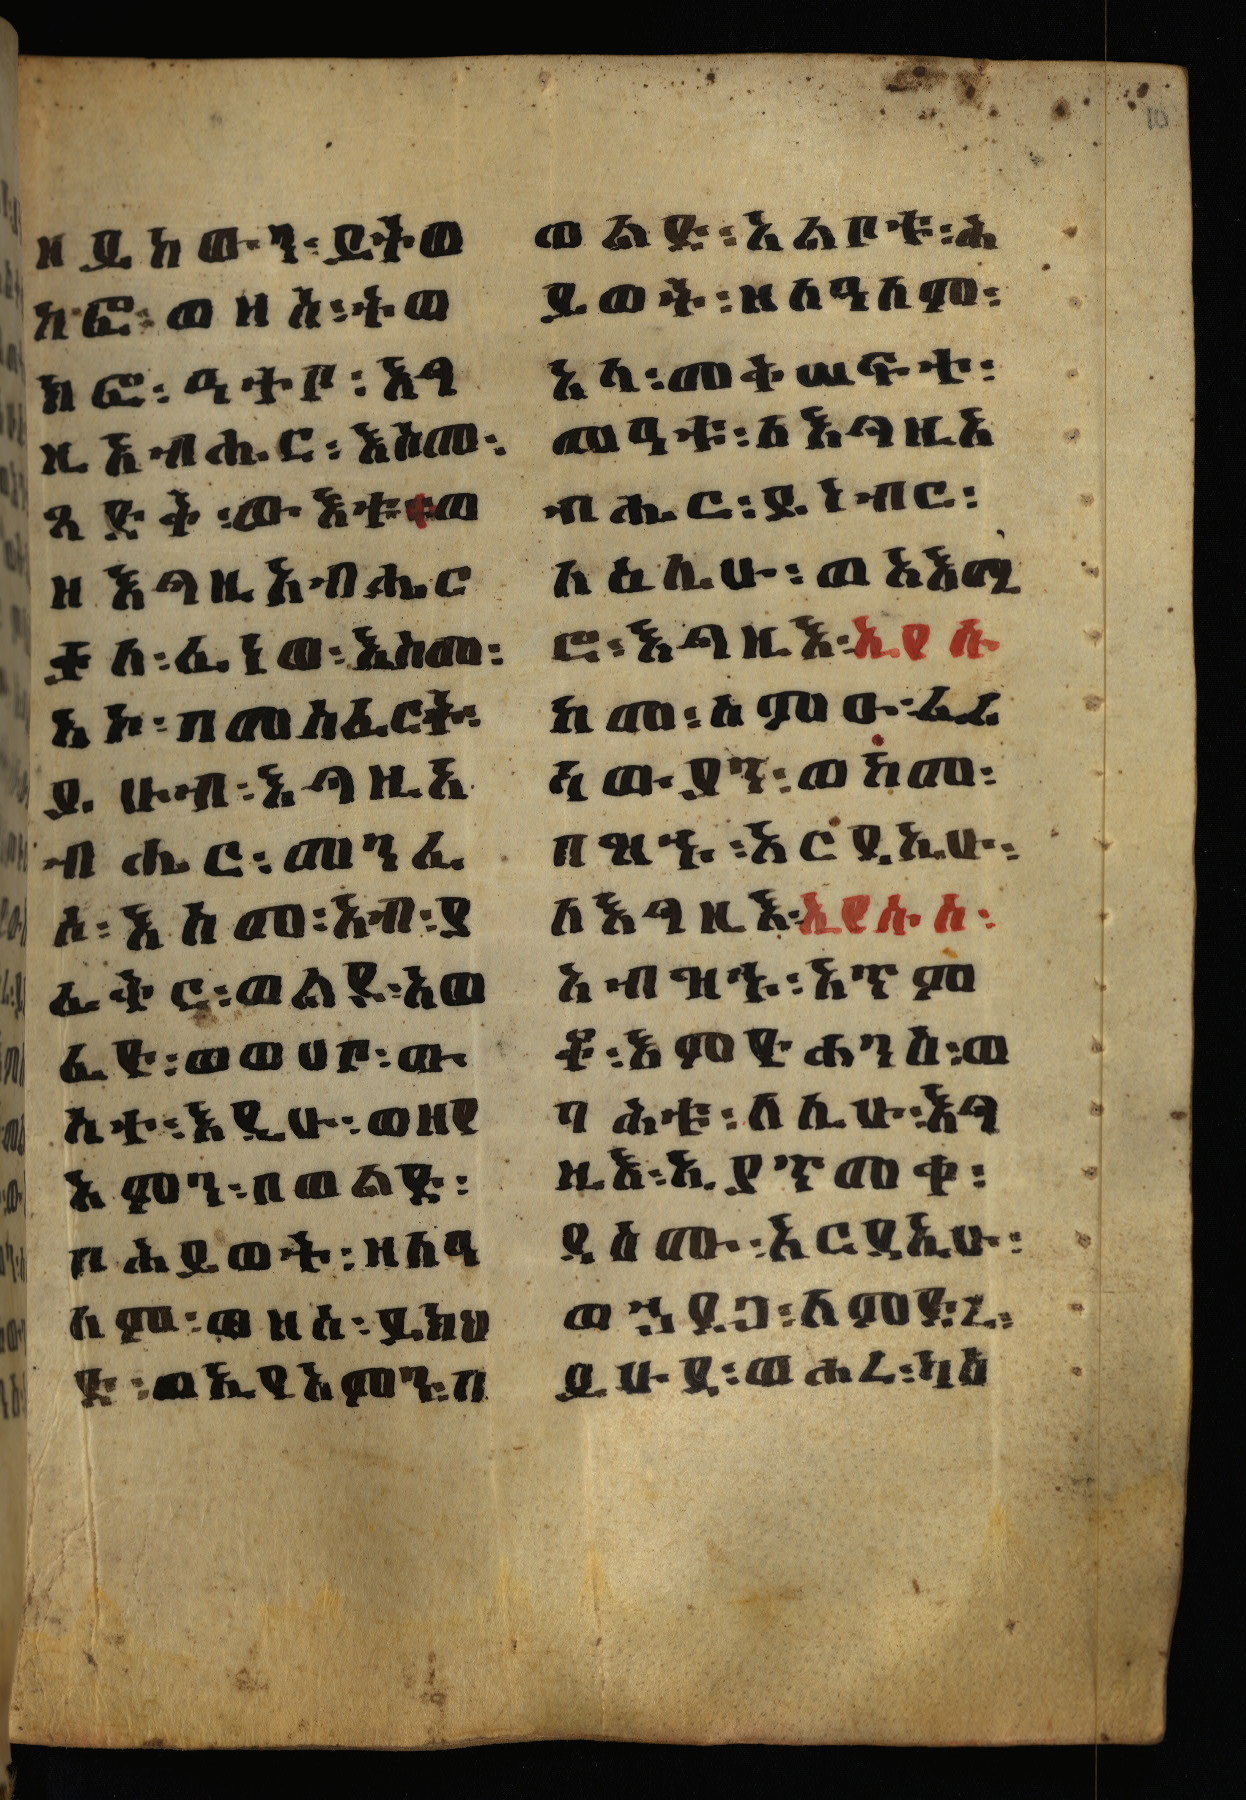 ዘይከውን፡ይትወ
ከፎ፡ወዘሰ፡ተወ
ክፎ፡ዲቶ፡እግ
ዚእብሔር፡እስመ፡
ጻድቅ፡ውእቱ፡ወ
ዘእግዚእብሔር
ቶ፡ለ፡ፈነወ፡እስመ፡
አኮ፡በመስፈርት፡
ይሁብ፡እግዚእ
ብሔር፡መንፈ
ሰ፡እስመ፡አብ፡ያ
ፈቅር፡ወልዶ፡አወ
ፈዮ፡ወወሀቦ፡ው
ስተ፡እዴሁ፡ወዘየ
አምን፡በወልድ፡
በ ሕይወት፡ዘለዓ
ለም፡ወዘሰ፡ይክህ
ድ፡ወኢየአምን፡በ
ወልድ፡ኢልቦቱ፡ሕ
ይወት፡ዘለዓለም፡
አላ፡መቅሠፍተ፡
መዓቱ፡ለእግዚእ
ብሔር፡ይነብር፡
ላዕሌሁ፡ወአእሚ
ሮ፡እግዚእ፡ኢየሱ
ከመ፡ሰምዑ፡ፈሪ
ሳውያን፡ወከመ፡
በዝኁ፡አርዳኢሁ፡
ለእግዚእ፡ኢየሱስ፡
አብዝኁ፡አጥም
ቆ፡እምዮሐንስ፡ወ
ባሕቱ፡ለሊሁ፡እግ
ዚእ፡ኢያጥመቀ፡
ዳዕሙ፡አርዳኢሁ፡
ወኀደጋ፡ለምድረ፡
ይሁዳ፡ወሐረ፡ካዕ